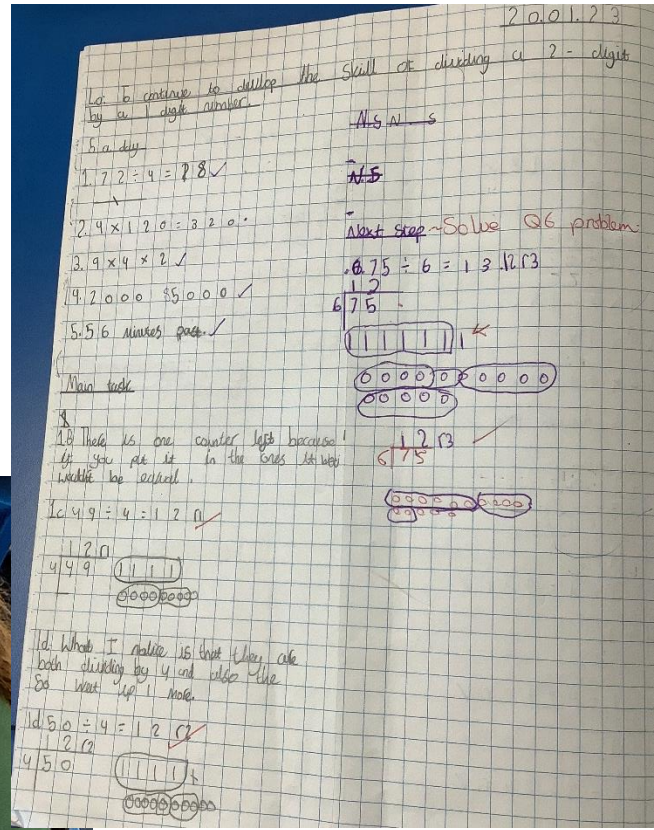 20.01.23
Lo: to continue to develop the skill of dividing a 2-digit
by a 1 digit number.
5 a day
1. 72 ÷ 4 = 18 ✓
2. 4 × 120 = 320 .
3. 9 × 4 × 2 ✓
4. 2000 85000 ✓
5. 56 minutes past. ✓
Main task
1b There is one counter left because
if you put it in the ones it
wouldnt be equal.
1c 49 ÷ 4 = 12 r1
12 r1
4 49
1d What I notice is that they are
both dividing by 4 and also the
50 went up 1 more.
1d 50 ÷ 4 = 12 r2
2 r2
4 50
N.S N S
N.S
Next step ~ Solve Q6 problem
.6. 75 ÷ 6 = 13 12 r3
12
6 75
12 r3
6 75